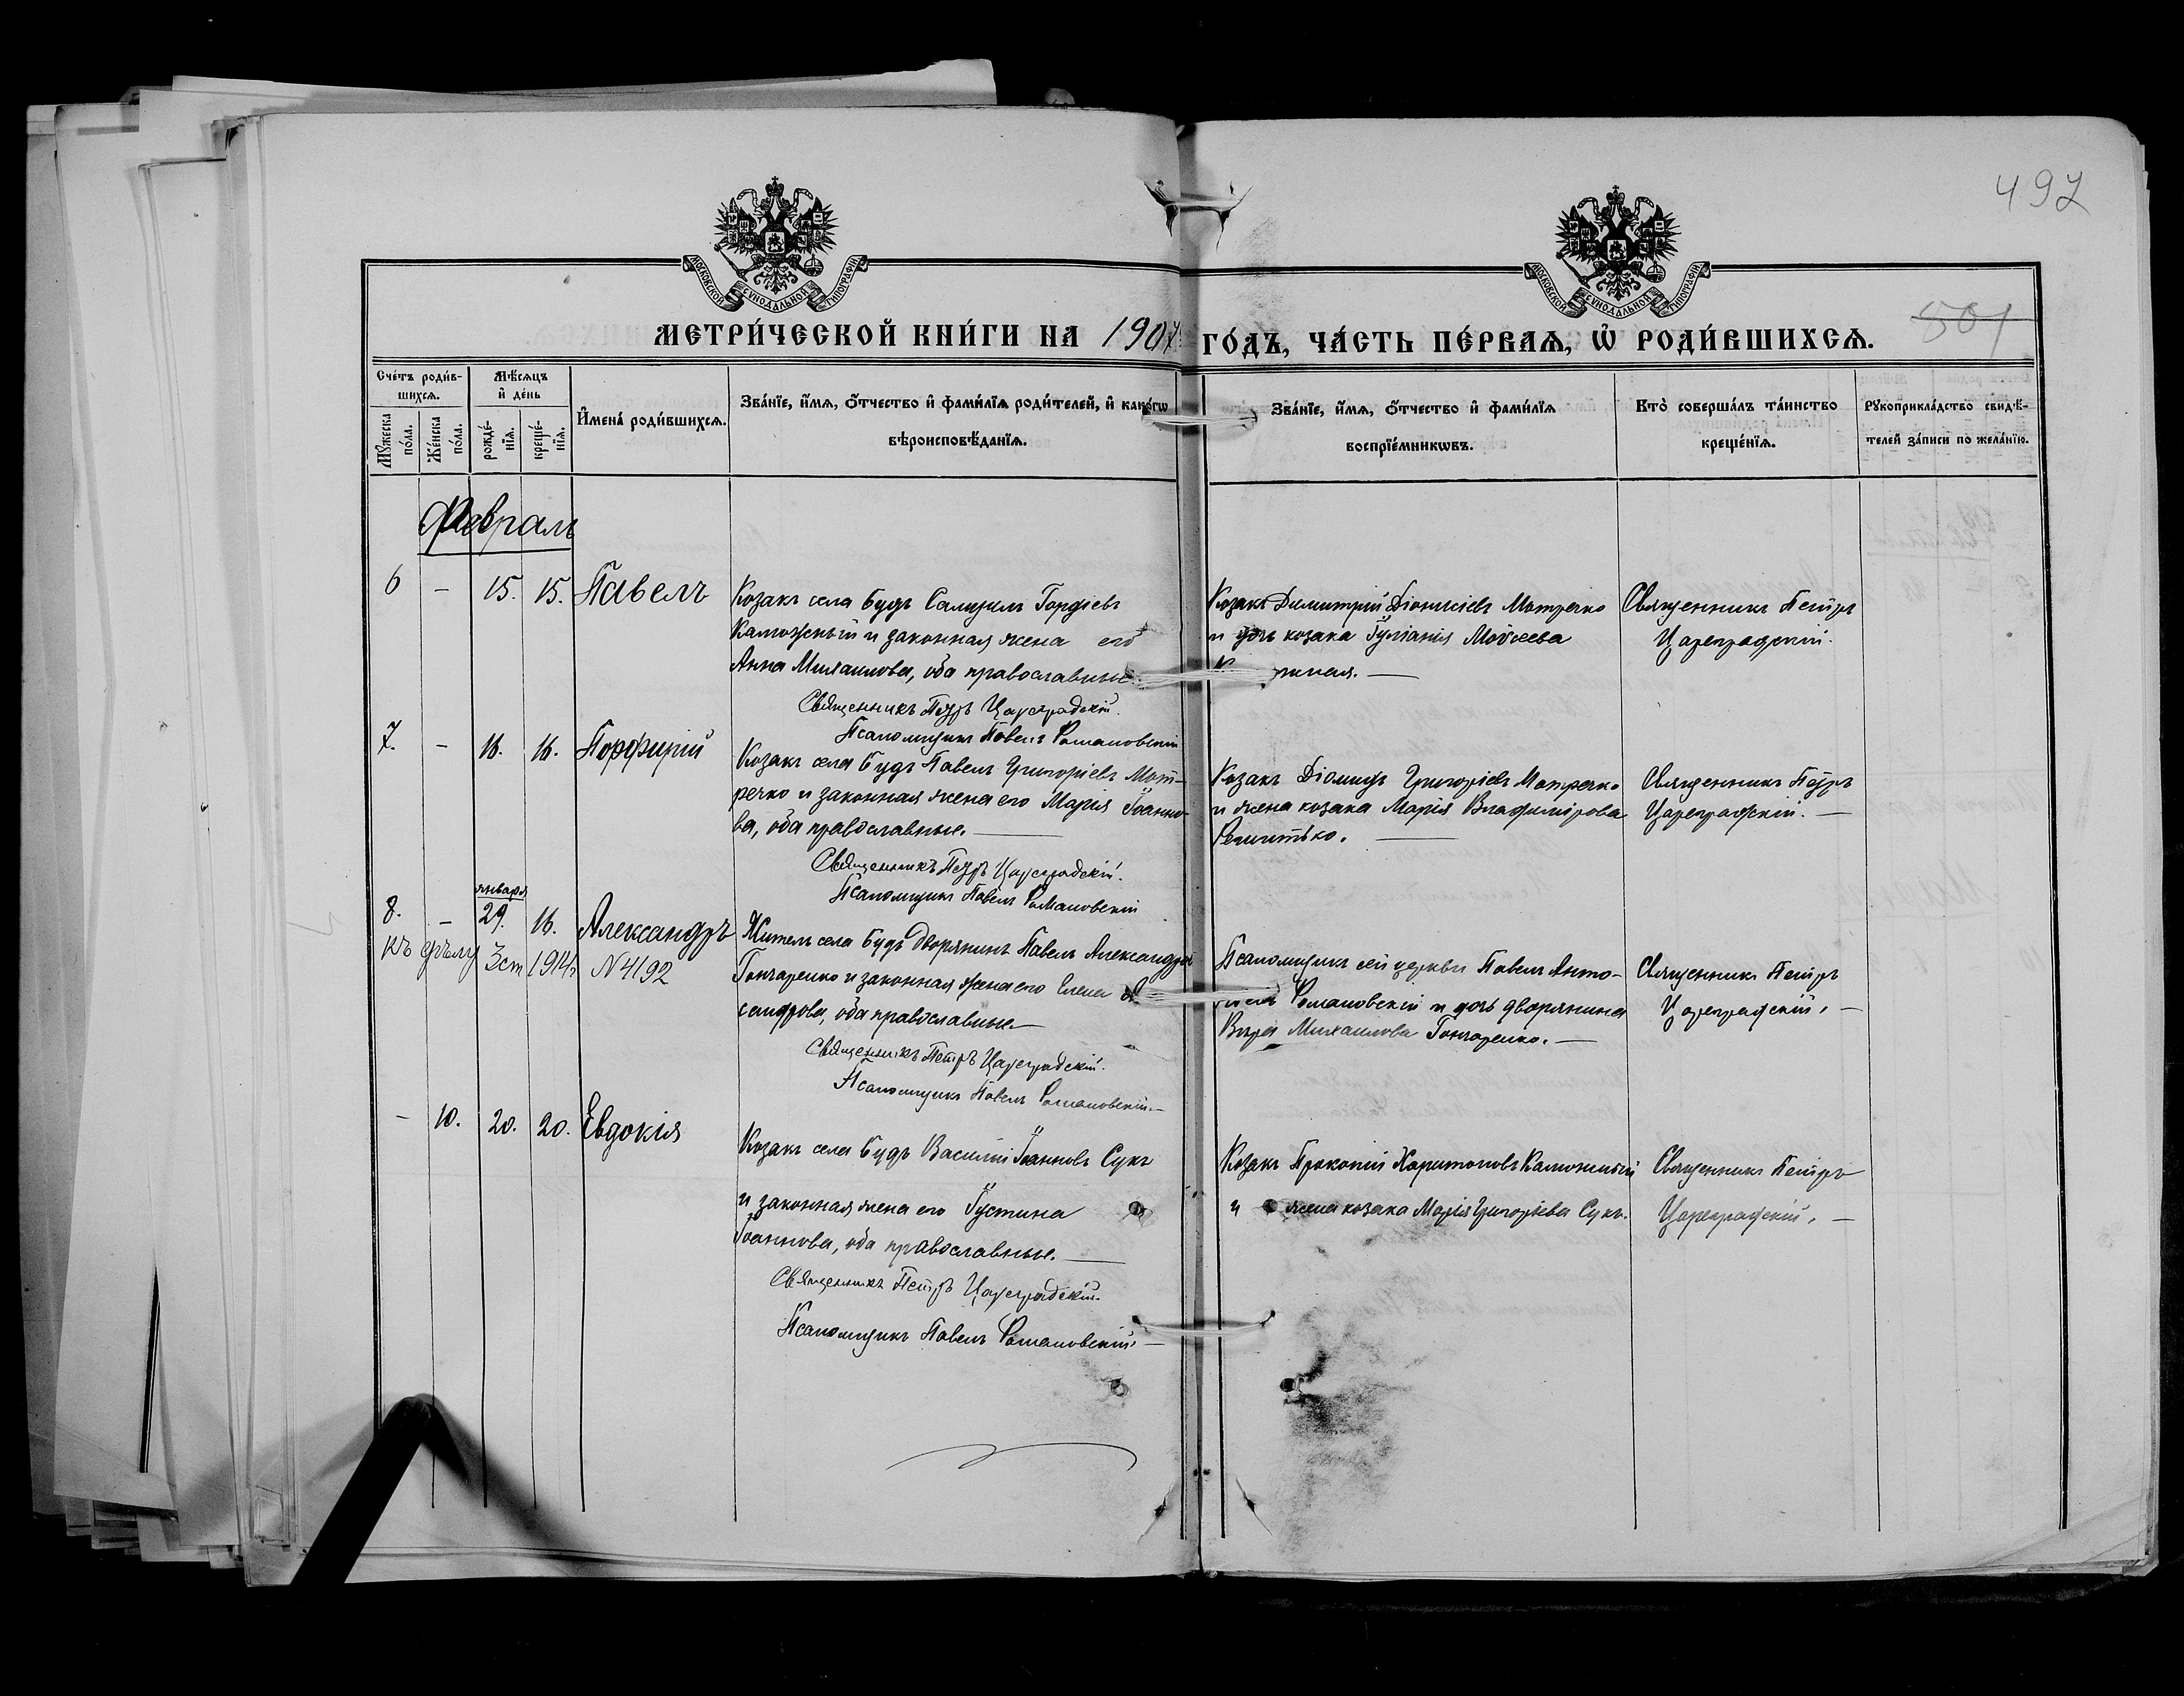 497
МОСКОВСКОЙ СУНОДАЛЬНОЙ ТИПОГРАФІИ
МОСКОВСКОЙ СУНОДАЛЬНОЙ ТИПОГРАФІИ
501
МЕТРИ́ЧЕСКОЙ КНИ́ГИ НА 1907 ГО́ДЪ, ЧА́СТЬ ПЕ́РВАѦ, Ѽ РОДИ́ВШИХСѦ.
Сче́тъ роди́в-
шихсѧ.
Мꙋ́жеска по́ла.
Же́нска по́ла.
Мѣ́сѧцъ и҆ де́нь
рожде́-нїѧ.
креще́-нїѧ.
И҆мена̀ роди́вшихсѧ.
Зва́нїе, и҆́мѧ, ѻ҆́тчество и҆ фами́лїѧ роди́телей, и҆ како́гѡ
вѣроисповѣ́данїѧ.
Зва́нїе, и҆́мѧ, ѻ҆́тчество и҆ фами́лїѧ
воспрїе́мникѡвъ.
Кто̀ соверша́лъ та́инство
креще́нїѧ.
Рꙋкоприкла́дство свидѣ́-
телей за́писи по жела́нїю.
Февраль
6 - 15. 15. Павелъ
Козакъ села Будъ Гордіевъ
Калюжный и законная жена его
Анна Михаилова, оба православные.
Священникъ Петръ Цареградскій.
Псаломщикъ Павелъ Романовскій
Козакъ Димитрій Діонисіевъ Матречко
и дочь козака Іуліанія Моѵсеева
Священникъ Петръ
Цареградскій.
7. - 16. 16. Порфирій
Козакъ села Будъ Павелъ Григоріевъ Мат-
речко и законная жена его Марія Іоанно-
ва, оба православные.
Священникъ Петръ Цареградскій.
Псаломщикъ Павелъ Романовскій
Козакъ Діомидъ Григоріевъ Матречко
и жена козака Марія Владимірова
Решитько.
Священникъ Петръ
Цареградскій.
января
8. - 29. 16. Александръ
Къ дѣлу 3 ст 1914 г. N 4192
Житель села Будъ дворянинъ Павелъ Александровъ
Гончаренко и законная жена его Елена
сандрова, оба православные.
Священникъ Петръ Цареградскій.
Псаломщикъ Павелъ Романовскій.
Псаломщикъ сей церкви Павелъ Анто-
Романовскій и дочь дворянина
Вѣра Михаилова Гончаренко.
Священникъ Петръ
Цареградскій.
- 10. 20. 20. Евдокія
Козакъ села Будъ Василій Іоанновъ Сукъ
и законная жена его Іустина
Іоаннова, оба православные.
Священникъ Петръ Цареградскій.
Псаломщикъ Павелъ Романовскій.
Козакъ Прокопій Харитоновъ Калюжный
и жена козака Марія Григорьева Сукъ.
Священникъ Петръ
Цареградскій.